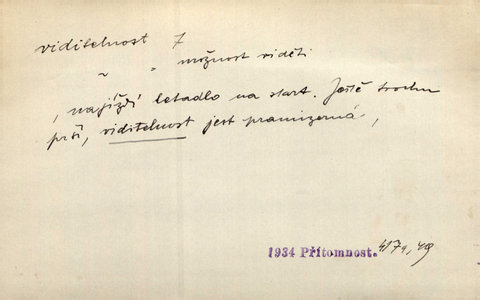 viditelnost 7
" " možnost viděti
, najíždí letadlo na start. Ještě trochu
prší, viditelnost jest pramizerná,
1934 Přítomnost.